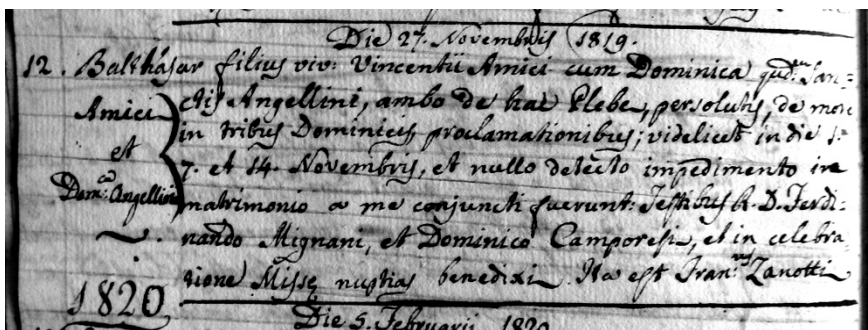 Die 27. Novembris 1819.
12. Balthasar filius viv: Vincentii Amici cum Dominica qudm San=
Amici
et
Domca Angellini
ctis Angellini, ambo de hac Plebe, persolutis, de more
in tribus Dominicis proclamationibus; videlicet in die 1.
7. et 14. Novembris, et nullo detecto impedimento in
matrimonio a me conjuncti fuerunt: Testibus R. D. Ferdi=
nando Mignani, et Dominico Camporesi, et in celebra
tione Missę nuptias benedixi. Ita est Franus Zanotti
1820
Die 5. Februarii 1820